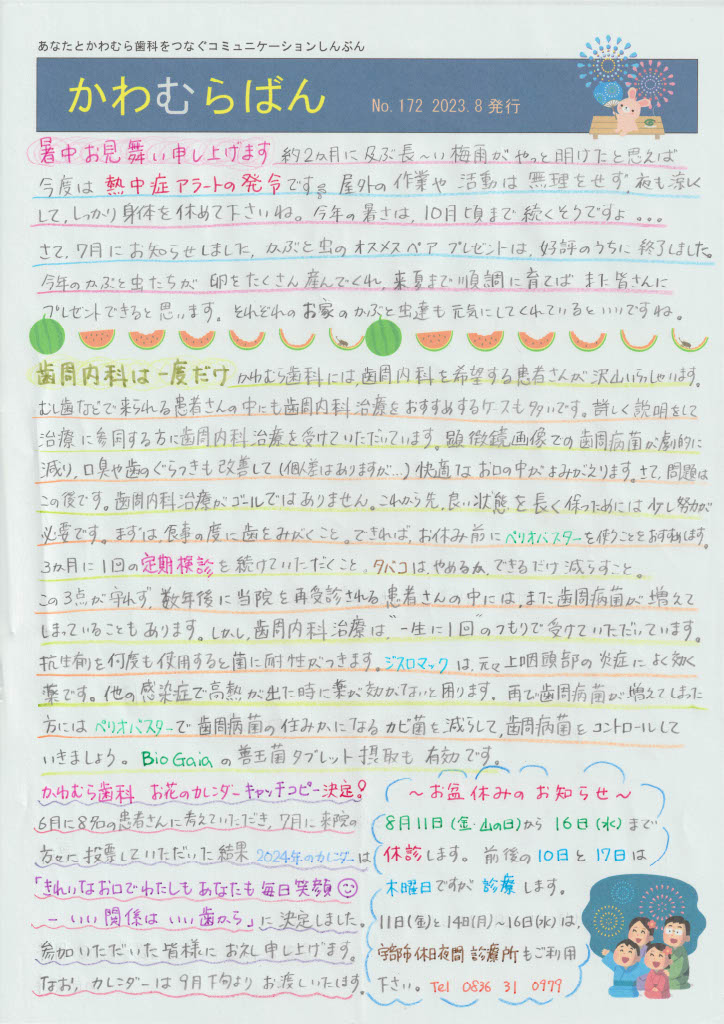 あなたとかわむら歯科をつなぐコミュニケーションしんぶん
かわむらばん No.172 2023.8発行
暑中お見舞い申し上げます 約2ヵ月に及ぶ長〜い梅雨がやっと明けたと思えば
今度は 熱中症アラートの発令です。屋外の作業や活動は無理をせず、夜も涼しく
して、しっかり身体を休めて下さいね。今年の暑さは、10月頃まで続くそうですよ...
さて、7月にお知らせしました、かぶと虫のオスメスペアプレゼントは、好評のうちに終了しました。
今年のかぶと虫たちが卵をたくさん産んでくれ、来夏まで順調に育てば また皆さんに
プレゼントできると思います。それぞれのお家のかぶと虫達も元気にしてくれているといいですね。
歯周内科は一度だけ かわむら歯科には、歯周内科を希望する患者さんが沢山いらっしゃいます。
むし歯などで来られる患者さんの中にも歯周内科治療をおすすめするケースも多いです。詳しく説明をして
治療に参同する方に歯周内科治療を受けていただいています。顕微鏡画像での歯周病菌が劇的に
減り、口臭や歯のぐらつきも改善して(個人差はありますが...)快適なお口の中がよみがえります。さて、問題は
この後です。歯周内科治療がゴールではありません。これから先、良い状態を長く保つためには少し努力が
必要です。まずは、食事の度に歯をみがくこと。できれば、お休み前にペリオバスターを使うことをおすすめします。
3ヵ月に1回の定期検診を続けていただくこと。タバコは、やめるか、できるだけ減らすこと。
この3点が守れず、数年後に当院を再受診される患者さんの中には、また歯周病菌が増えて
しまっていることもあります。しかし、歯周内科治療は"一生に1回"のつもりで受けていただいています。
抗生剤を何度も使用すると菌に耐性がつきます。ジスロマックは、元々上咽頭部の炎症によく効く
薬です。他の感染症で高熱が出た時に薬が効かないと困ります。再び歯周病菌が増えてしまった
方にはペリオバスターで歯周病菌の住みかになるカビ菌を減らして、歯周病菌をコントロールして
いきましょう。BioGaiaの善玉菌タブレット摂取も有効です。
かわむら歯科 お花のカレンダーキャッチコピー決定!
6月に8名の患者さんに考えていただき、7月に来院の
方々に投票していただいた結果 2024年のカレンダーは
「きれいなお口でわたしもあなたも毎日笑顔
−いい関係はいい歯から」に決定しました。
参加いただいた皆様にお礼申し上げます。
なお、カレンダーは9月下旬よりお渡しいたします。
〜お盆休みのお知らせ〜
8月11日(金・山の日)から16日(水)まで
休診します。前後の10日と17日は
木曜日ですが診療します。
11日(金)と14日(月)〜16日(水)は、
宇部市休日夜間診療所もご利用
下さい。Tel 0836 31 0979